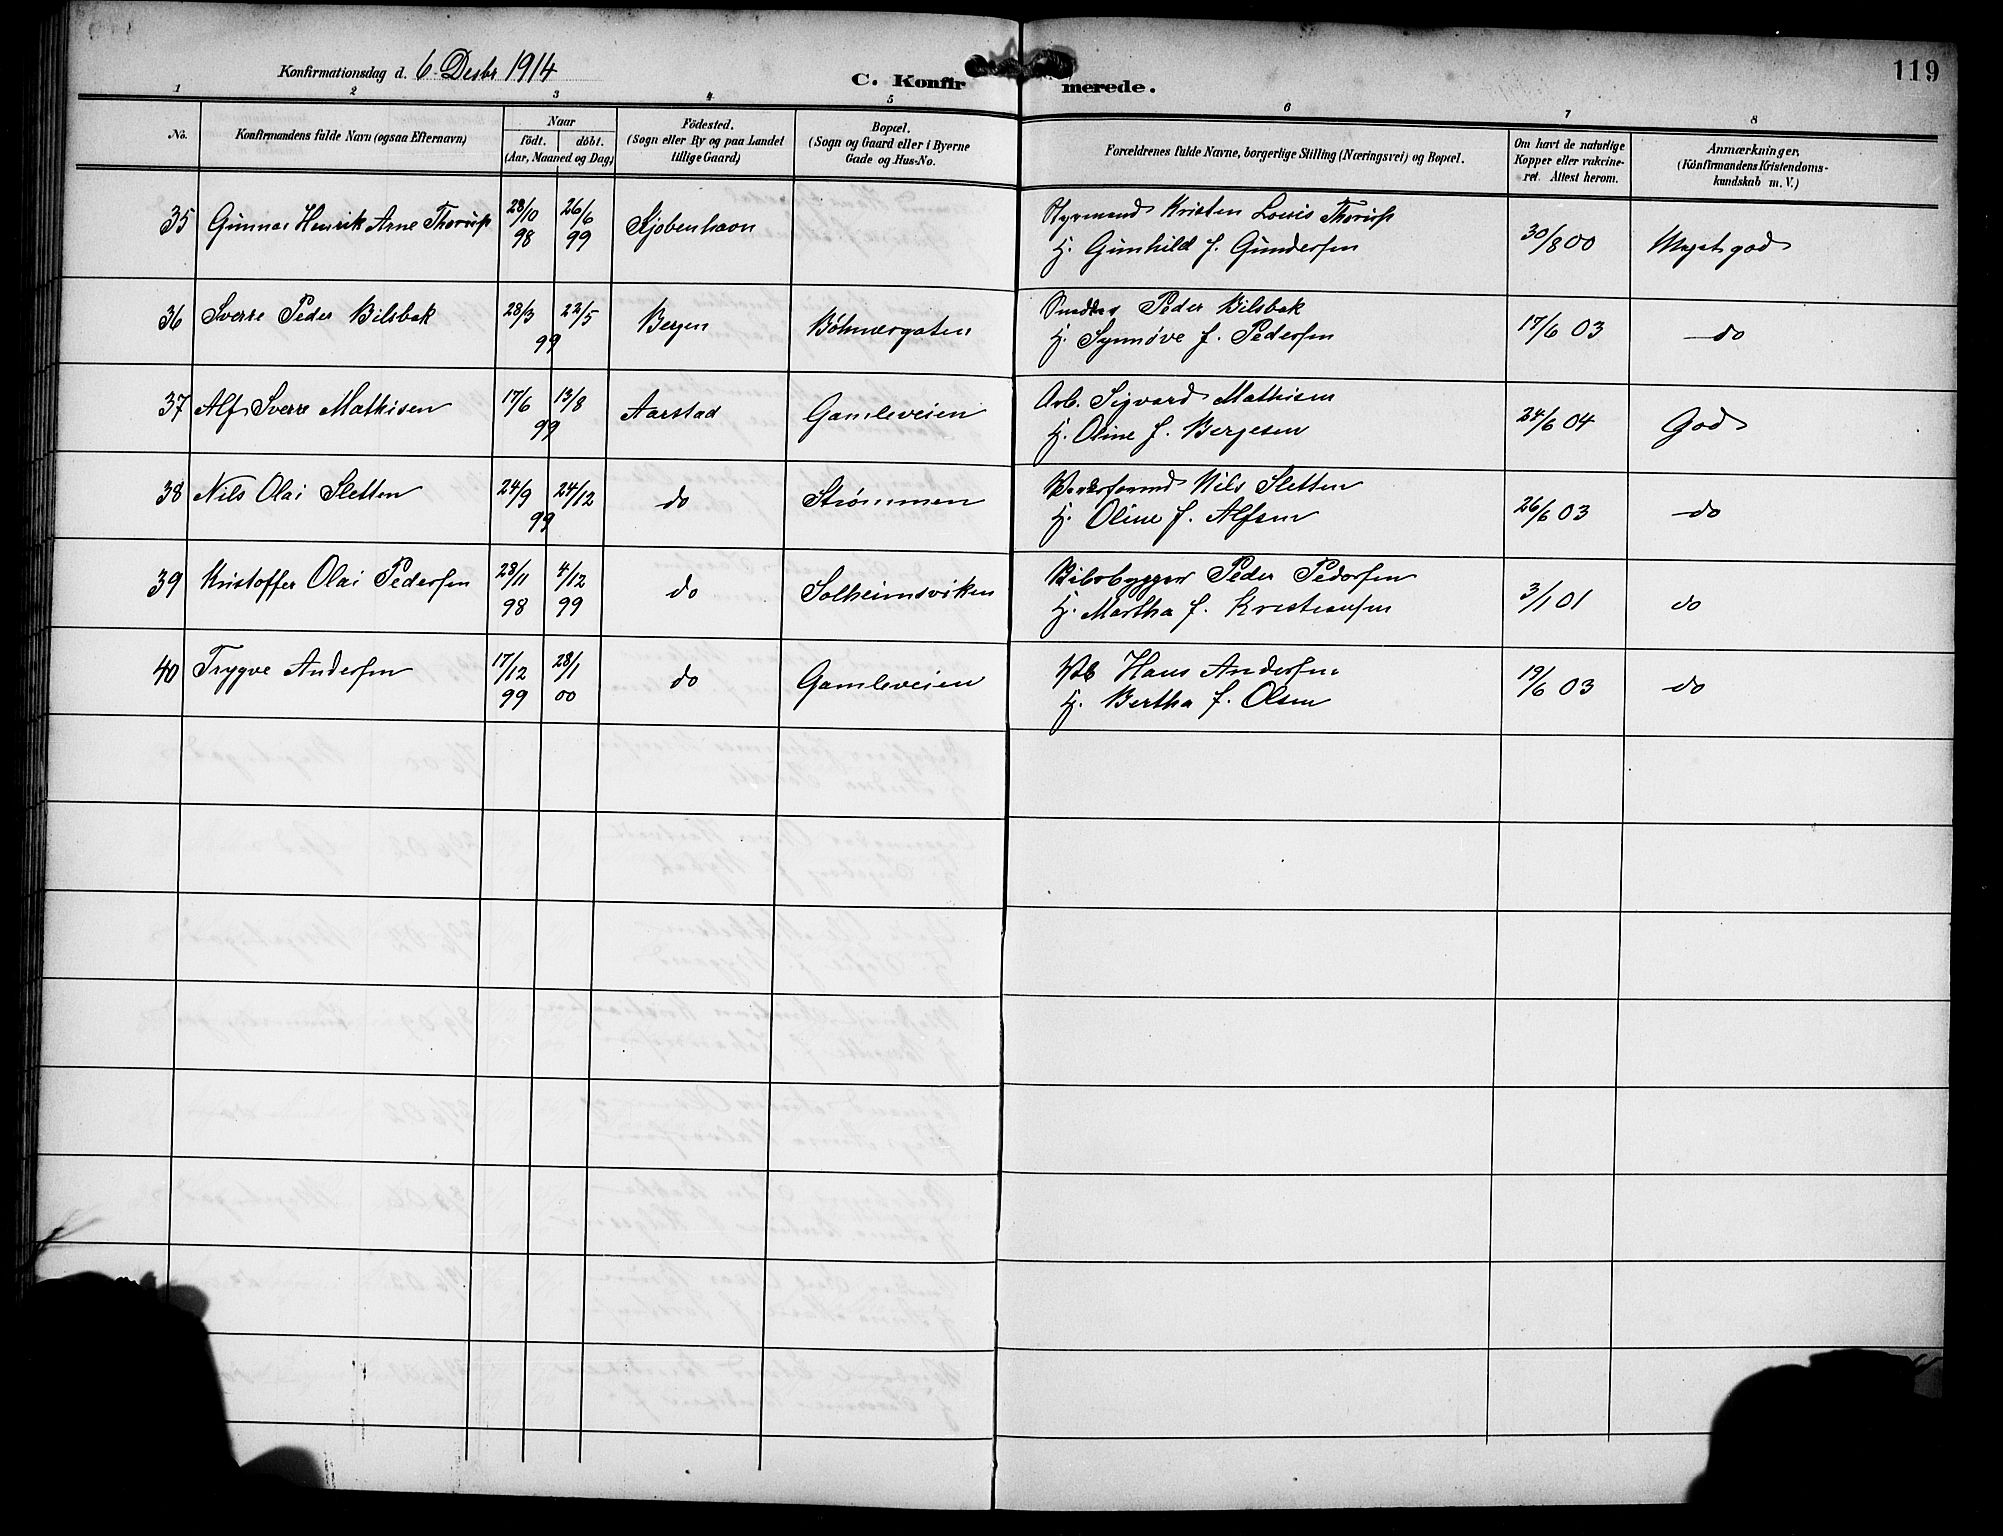 119
Konfirmationsdag d. 6. Desbr 1914
C. Konfirmerede.
1 2 3 4 5 6 7 8
No.
Konfirmandens fulde Navn (ogsaa Efternavn)
Naar
födt. döbt.
(Aar, Maaned og Dag)
Födested.
(Sogn eller By og paa Landet
tillige Gaard)
Bopæl.
(Sogn og Gaard eller i Byerne
Gade og Hus-No.
Forældrenes fulde Navne, borgerlige Stilling (Næringsvei) og Bopæl.
Om havt de naturlige
Kopper eller vakcine-
ret. Attest herom.
Anmærkninger,
(Konfirmandens Kristendoms-
kundskab m. V.)
35 Gunnar Henrik Arne Thorup 28/10 98 26/6 99 Kjøbenhavn
Styrmand Kristen Louis Thorup
H. Gunhild f. Gundersen 30/8 00 Meget god
36 Sverre Peder Bilsbak 28/3 22/5 99 Bergen Bøhmergaten
Snedker Peder Bilsbak
H. Synnøve f. Pedersen 17/6 03 do
37 Alf Sverre Mathisen 17/6 13/8 99 Aarstad Gamleveien
Arb. Sigvard Mathisen
H. Oline f. Bergesen 24/6 04 God
38 Nils Olai Sletten 24/9 24/12 99 do Strømmen
Nils Sletten
H. Oline f. Alfsen 26/6 03 do
39 Kristoffer Olai Pedersen 28/11 98 4/12 99 do Solheimsviken
Peder Pedersen
H. Martha f. Kristiansen 3/1 01 do
40 Trygve Andersen 17/12 99 28/1 00 do Gamleveien
Hans Andersen
H. Bertha f. Olsen 19/6 03 do